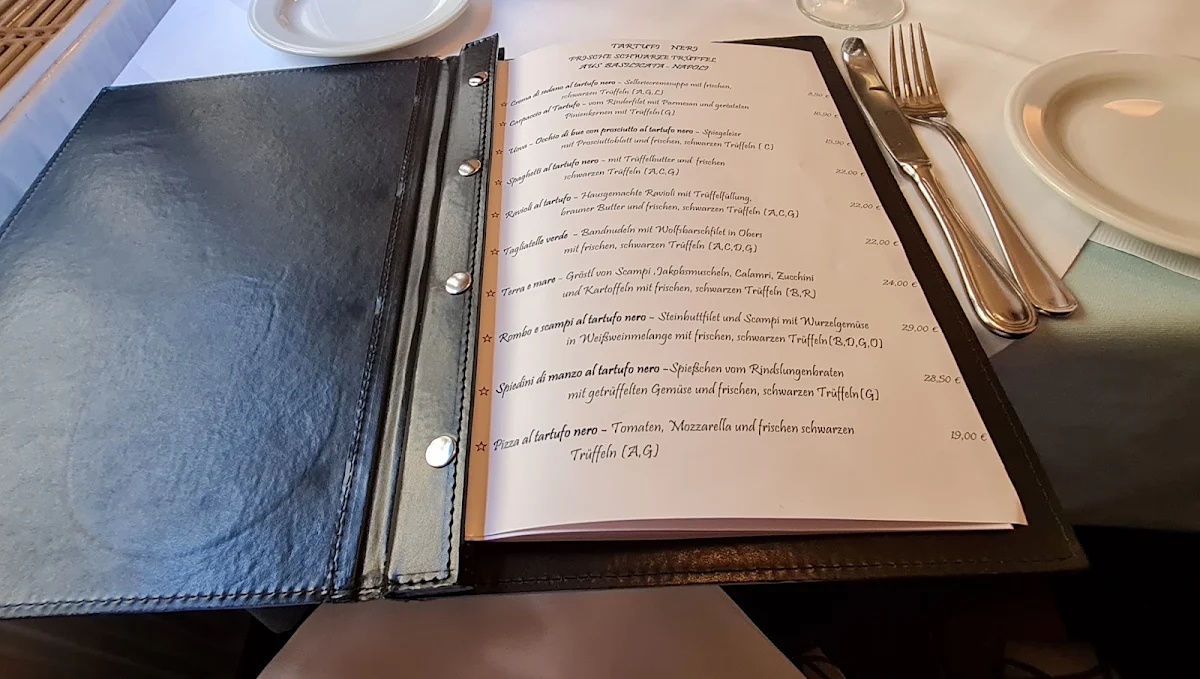 TARTUFI NERI
FRISCHE SCHWARZE TRÜFFEL
AUS BASILICATA - NAPOLI
☆ Crema di sedano al tartufo nero - Selleriecremsuppe mit frischen,
schwarzen Trüffeln (A,G,L) 8,90 €
☆ Carpaccio al Tartufo - vom Rinderfilet mit Parmesan und gerösteten
Pinienkernen mit Trüffeln(G) 16,90 €
☆ Uova - Occhio di bue con prosciutto al tartufo nero - Spiegeleier
mit Prosciuttoblatt und frischen, schwarzen Trüffeln ( C) 15,90 €
☆ Spaghetti al tartufo nero - mit Trüffelbutter und frischen
schwarzen Trüffeln (A,C,G) 22,00 €
☆ Ravioli al tartufo - Hausgemachte Ravioli mit Trüffelfüllung,
brauner Butter und frischen, schwarzen Trüffeln (A,C,G) 22,00 €
☆ Tagliatelle verde - Bandnudeln mit Wolfsbarschfilet in Obers
mit frischen, schwarzen Trüffeln (A,C,D,G) 22,00 €
☆ Terra e mare - Gröstl von Scampi ,Jakobsmuscheln, Calamri, Zucchini
und Kartoffeln mit frischen, schwarzen Trüffeln (B,R) 24,00 €
☆ Rombo e scampi al tartufo nero - Steinbuttfilet und Scampi mit Wurzelgemüse
in Weißweinmelange mit frischen, schwarzen Trüffeln(B,D,G,O) 29,00 €
☆ Spiedini di manzo al tartufo nero -Spießchen vom Rindslungenbraten
mit getrüffelten Gemüse und frischen, schwarzen Trüffeln(G) 28,50 €
☆ Pizza al tartufo nero - Tomaten, Mozzarella und frischen schwarzen
Trüffeln (A,G) 19,00 €